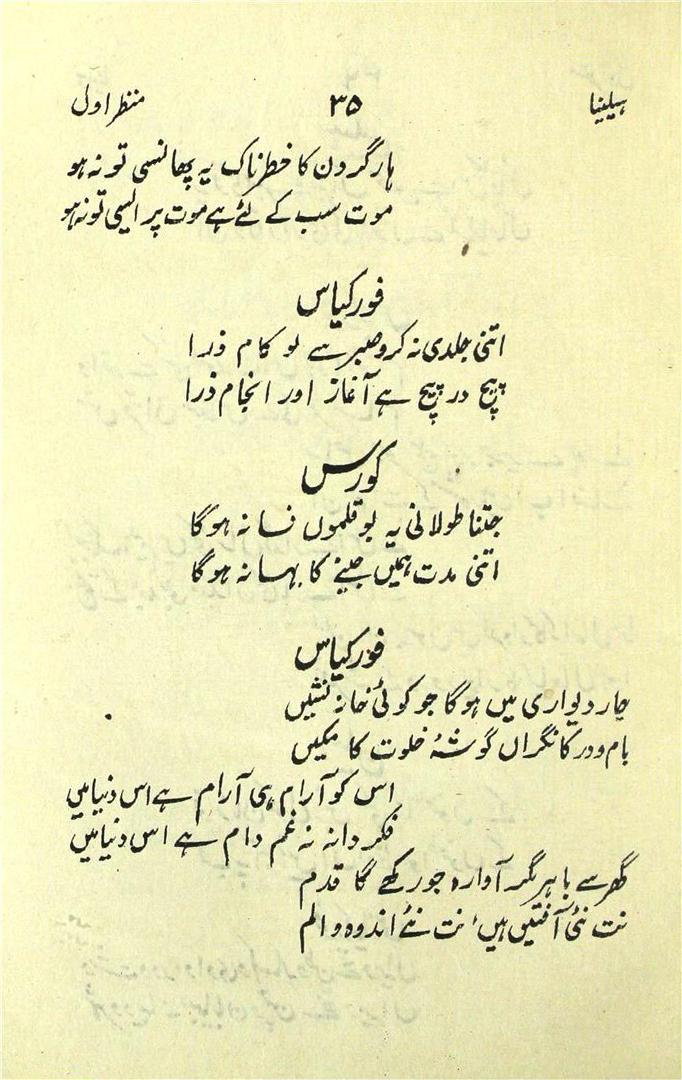 ہیلینا ۳۵ منظر اول
ہار گردن کا خطرناک یہ پھانسی تو نہ ہو
موت سب کے لئے ہے موت پر ایسی تو نہ ہو
فورکیاس
اتنی جلدی نہ کرو صبر سے لو کام ذرا
پیچ در پیچ ہے آغاز اور انجام ذرا
کورس
جتنا طولانی یہ بوقلموں فسانہ ہوگا
اتنی مدت ہمیں جینے کا بہانہ ہوگا
فورکیاس
چار دیواری میں ہوگا جو کوئی خانہ نشیں
بام و در کا نگراں گوشۂ خلوت کا مکیں
اس کو آرام ہی آرام ہے اس دنیا میں
فکر دانہ نہ غم دام ہے اس دنیا میں
گھر سے باہر مگر آوارہ جو رکھے گا قدم
نت نئی آفتیں ہیں، نت نئے اندوہ و الم